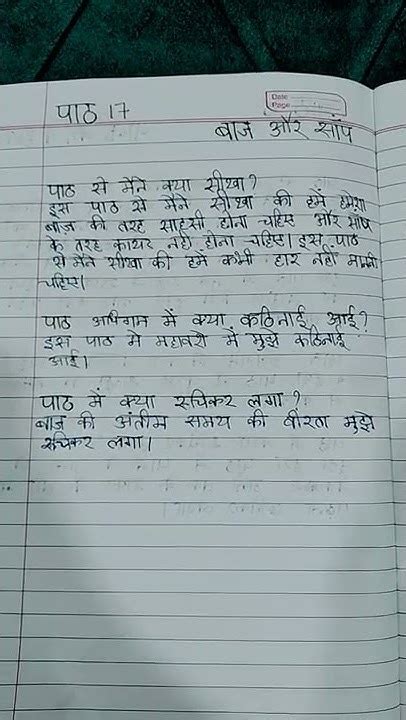 Date
Page
पाठ 17
बाज और सांप
पाठ से मैने क्या सीखा?
इस पाठ से मैने सीखा की हमें हमेशा
बाज की तरह साहसी होना चहिए और सांप
के तरह कायर नही होना चहिए। इस पाठ
से मैने सीखा की हमे कभी हार नहीं माननी
चहिए।
पाठ अधिगम में क्या कठिनाई आई?
इस पाठ मे महावरो में मुझे कठिनाई
आई।
पाठ में क्या रुचिकर लगा?
बाज की अंतीम समय की वीरता मुझे
रुचिकर लगा।